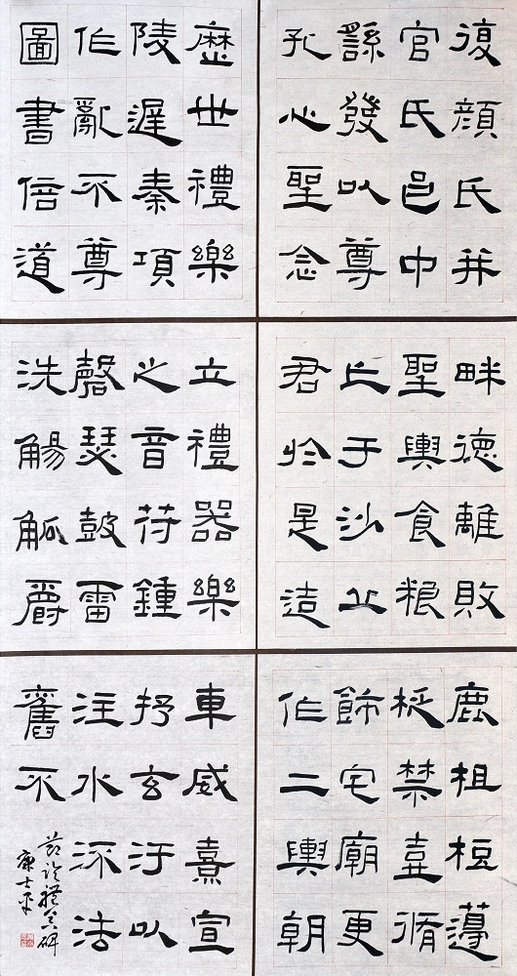 復顏氏并
官氏邑中
繇發以尊
孔心聖念
歷世禮樂
陵遲秦項
作亂不尊
圖書倍道
畔德離敗
聖輿食糧
亡于沙丘
君於是造
立禮器樂
之音苻鍾
磬瑟鼓雷
洗觴觚爵
鹿柤梪籩
柉禁壺脩
飾宅廟更
作二輿朝
車威熹宣
抒玄汙以
注水流法
舊不
節臨禮器碑
康士平